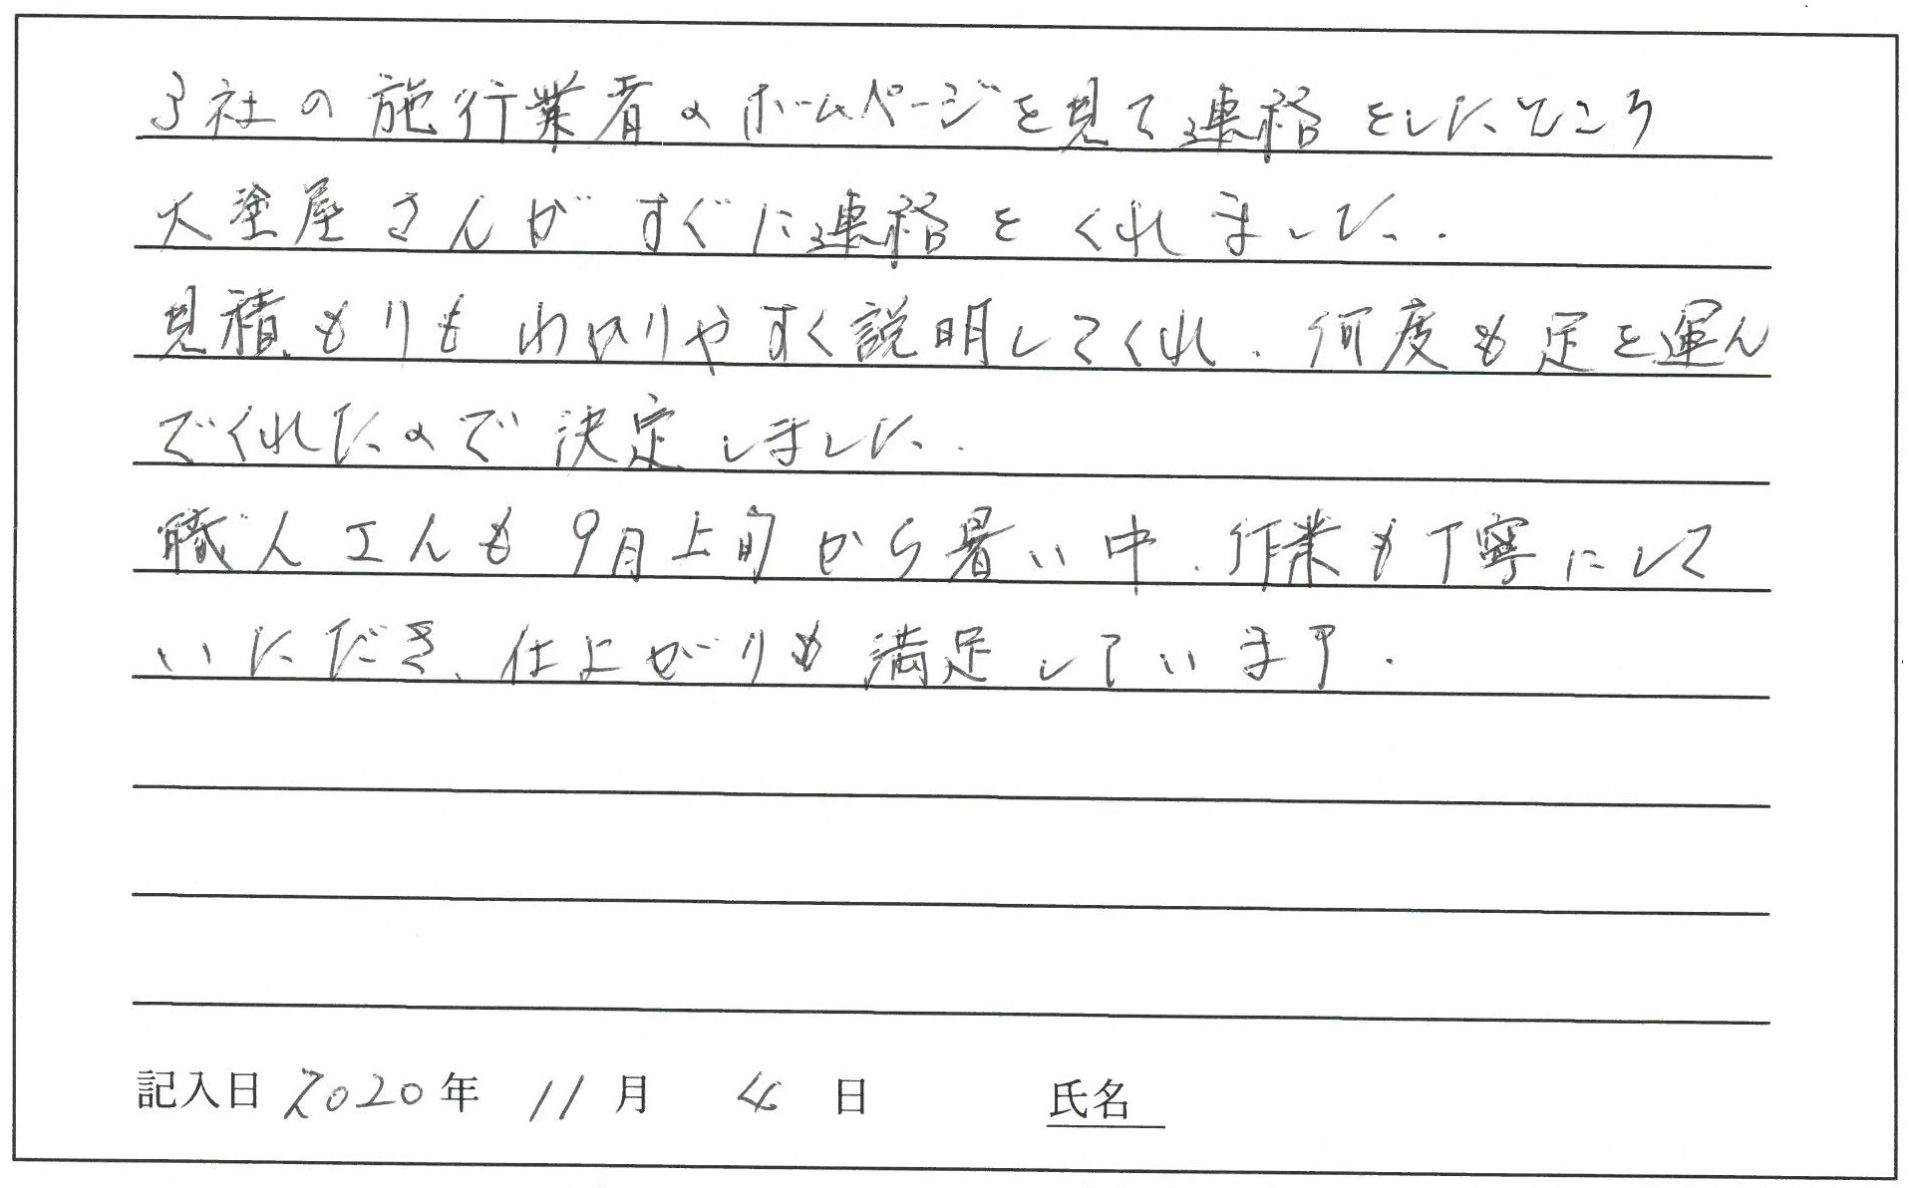 3社の施行業者のホームページを見て連絡をしたところ
大塗屋さんがすぐに連絡をくれました.
見積もりもわかりやすく説明してくれ.何度も足を運ん
でくれたので決定しました.
職人さんも9月上旬から暑い中.作業も丁寧にして
いただき、仕上がりも満足しています.
記入日 2020年 11月 4日 氏名